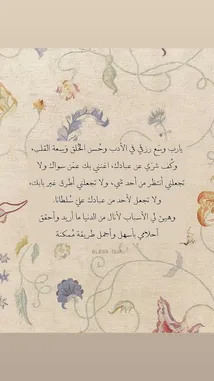 يارب وسّع رزقي في الأدب وحُسن الخُلق وسعة القلب،
وكُف شرّي عن عبادك، اغنني بك عمّن سواك ولا
تجعلني أنتظر من أحد شيء، ولا تجعلني أطرق غير بابك،
ولا تجعل لأحد من عبادك عليّ سُلطانا.
وهيئ لي الأسباب لأنال من الدنيا ما أريد وأحقق
أحلامي بأسهل وأجمل طريقة مُمكنة